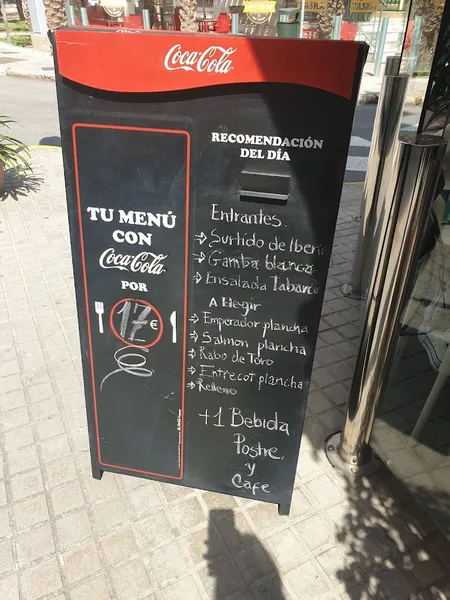 Coca-Cola
RECOMENDACIÓN
DEL DÍA
TU MENÚ
CON
Coca-Cola
POR
17€
Entrantes.
→ Surtido de Iberic
→ Gamba blanca
→ Ensalada Tabarca
A Elegir
→ Emperador plancha
→ Salmon plancha
→ Rabo de Toro
→ Entrecot plancha
→ Relleno
+1 Bebida
Postre,
y
Cafe